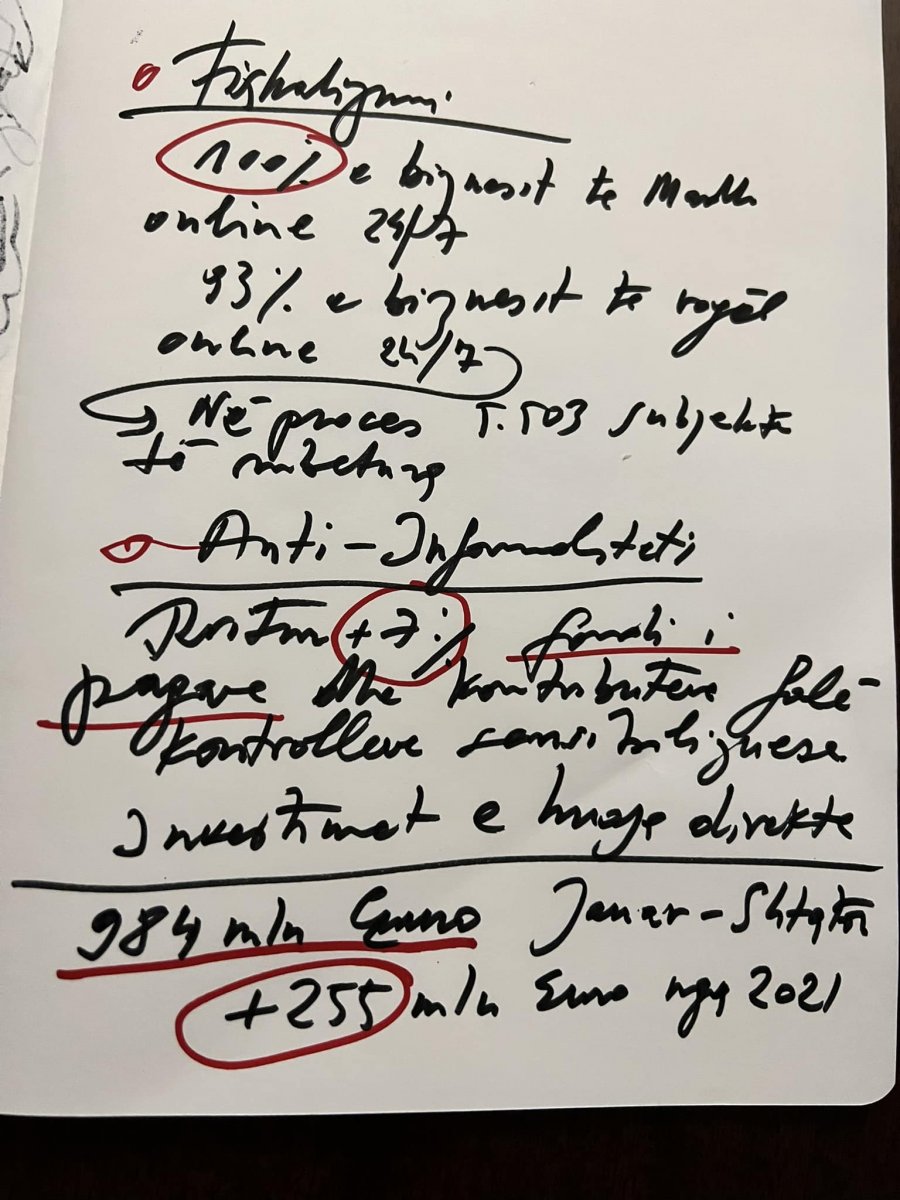 Fiskalizimi
100% e biznesit te Madh
online 24/7
93% e biznesit te vogël
online 24/7
Në proces 5.503 subjekte
të mbetura
Anti-Informaliteti
Rritur +7% fondi i
pagave dhe kontributeve falë
kontrolleve sensibilizuese
Investimet e huaja direkte
984 mln Euro Janar-Shtator
+255 mln Euro nga 2021